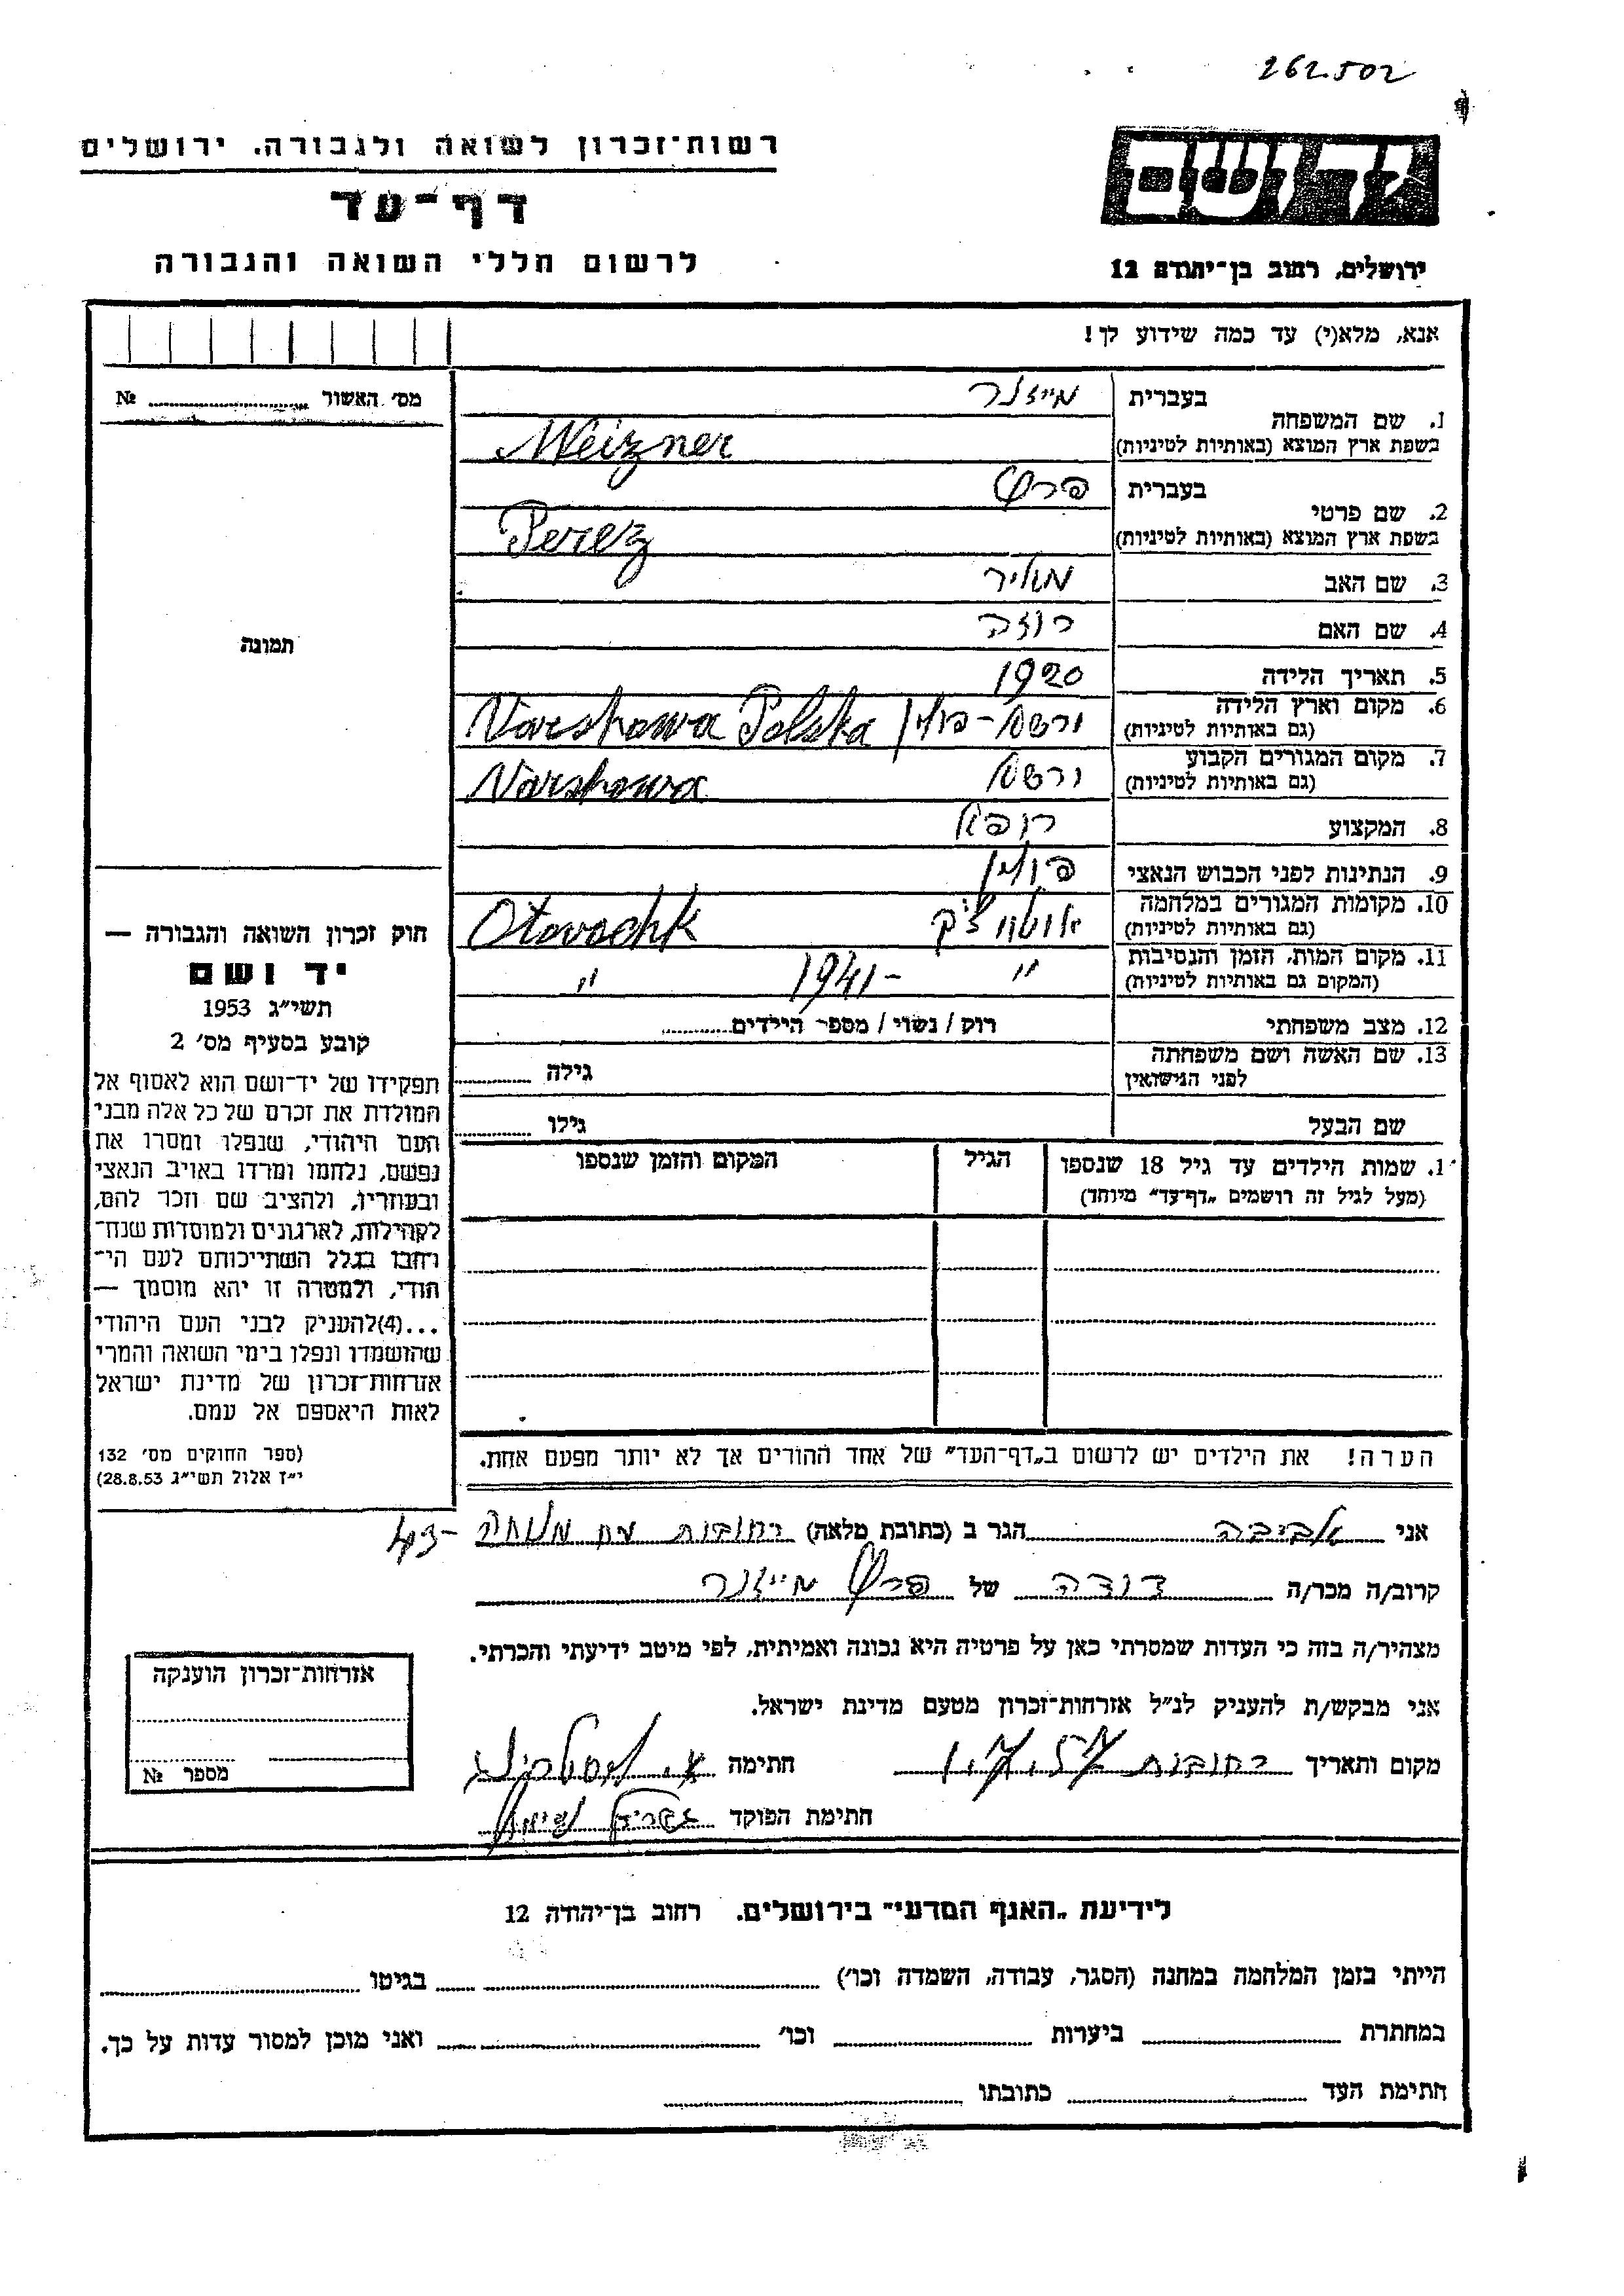 262.502
יד ושם
ירושלים, רחוב בן־יהודה 12
רשות־זכרון לשואה ולגבורה. ירושלים
דף־עד
לרשום חללי השואה והגבורה
אנא, מלא(י) עד כמה שידוע לך!
מס׳ האשור № 
1. שם המשפחה בעברית מייזנר
בשפת ארץ המוצא (באותיות לטיניות) Meizner
2. שם פרטי בעברית פרץ
בשפת ארץ המוצא (באותיות לטיניות) Perez
3. שם האב מאיר
4. שם האם רוזה
5. תאריך הלידה 1920
6. מקום וארץ הלידה (גם באותיות לטיניות) ורשה - פולין Varshawa Polska
7. מקום המגורים הקבוע (גם באותיות לטיניות) ורשה Varshawa
8. המקצוע רופא
9. הנתינות לפני הכבוש הנאצי פולין
10. מקומות המגורים במלחמה (גם באותיות לטיניות) אוטווצ'ק Otwochk
11. מקום המות, הזמן והנסיבות (המקום גם באותיות לטיניות) " 1941- "
12. מצב משפחתי רוק / נשוי / מספר הילדים
13. שם האשה ושם משפחתה לפני הנישואין גילה
שם הבעל גילו
1. שמות הילדים עד גיל 18 שנספו הגיל המקום והזמן שנספו
(מעל לגיל זה רושמים „דף־עד״ מיוחד)
הערה! את הילדים יש לרשום ב„דף־העד״ של אחד ההורים אך לא יותר מפעם אחת.
תמונה
חוק זכרון השואה והגבורה —
יד ושם
תשי״ג 1953
קובע בסעיף מס׳ 2
תפקידו של יד־ושם הוא לאסוף אל
המולדת את זכרם של כל אלה מבני
העם היהודי, שנפלו ומסרו את
נפשם, נלחמו ומרדו באויב הנאצי
ובעוזריו, ולהציב שם וזכר להם,
לקהילות, לארגונים ולמוסדות שנח־
רבו בגלל השתייכותם לעם הי־
הודי, ולמטרה זו יהא מוסמך —
...(4)להעניק לבני העם היהודי
שהושמדו ונפלו בימי השואה והמרי
אזרחות־זכרון של מדינת ישראל
לאות היאספם אל עמם.
(ספר החוקים מס׳ 132
י״ז אלול תשי״ג 28.8.53)
אני אביבה הגר ב (כתובת מלאה) רחובות 43-
קרוב/ה מכר/ה דודה של פרץ מייזנר
מצהיר/ה בזה כי העדות שמסרתי כאן על פרטיה היא נכונה ואמיתית, לפי מיטב ידיעתי והכרתי.
אני מבקש/ת להעניק לנ״ל אזרחות־זכרון מטעם מדינת ישראל.
מקום ותאריך רחובות חתימה
חתימת הפוקד
אזרחות־זכרון הוענקה
מספר №
לידיעת „האגף המדעי״ בירושלים. רחוב בן־יהודה 12
הייתי בזמן המלחמה במחנה (הסגר, עבודה, השמדה וכו׳) בגיטו
במחתרת ביערות וכו׳ ואני מוכן למסור עדות על כך.
חתימת העד כתובתו